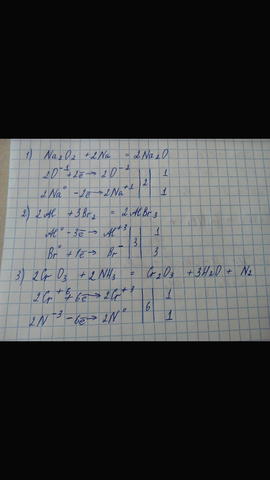 1) Na₂O₂ + 2Na = 2Na₂O
2O⁻¹ + 2e → 2O⁻² | 2 | 1
2Na⁰ - 2e → 2Na⁺¹ | | 1
2) 2Al + 3Br₂ = 2AlBr₃
Al⁰ - 3e → Al⁺³ | 3 | 1
Br⁰ + 1e → Br⁻ | | 3
3) 2CrO₃ + 2NH₃ = Cr₂O₃ + 3H₂O + N₂
2Cr⁺⁶ + 6e → 2Cr⁺³ | 6 | 1
2N⁻³ - 6e → 2N⁰ | | 1